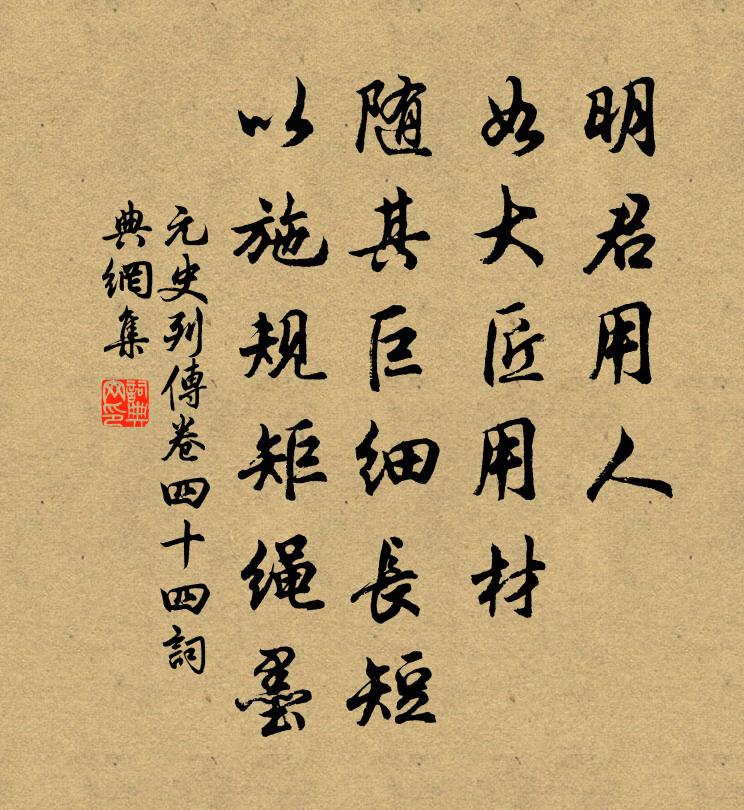 明君用人
如大匠用材
随其巨细長短
以施规矩绳墨
元史列傳卷四十四詞
典網集
詞典網印